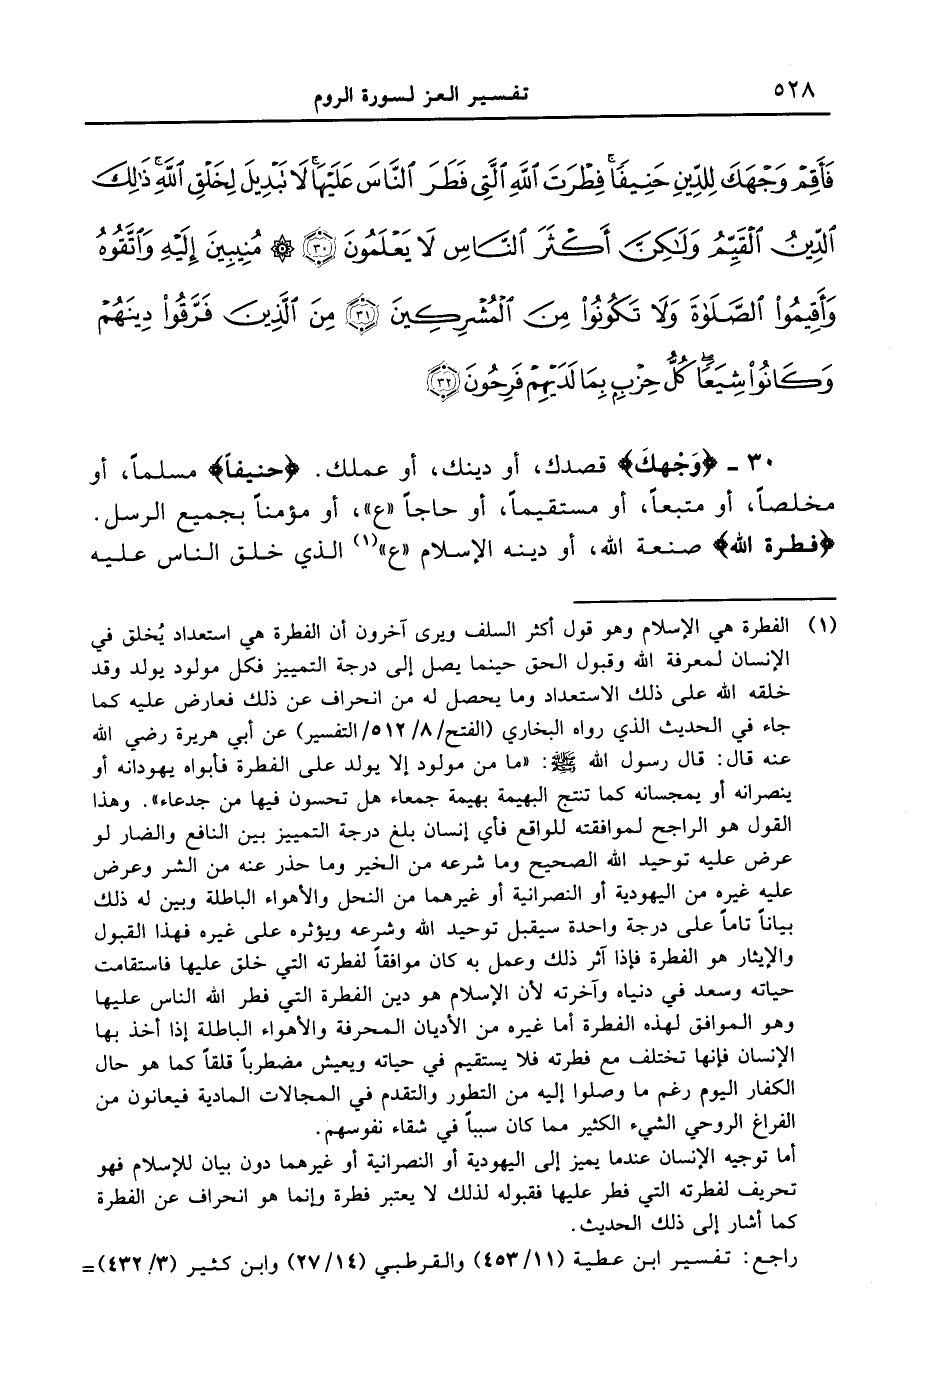 ٥٢٨
تفسير العز لسورة الروم
فَأَقِمْ وَجْهَكَ لِلدِّينِ حَنِيفًا ۚ فِطْرَتَ ٱللَّهِ ٱلَّتِى فَطَرَ ٱلنَّاسَ عَلَيْهَا ۚ لَا تَبْدِيلَ لِخَلْقِ ٱللَّهِ ۚ ذَٰلِكَ
ٱلدِّينُ ٱلْقَيِّمُ وَلَٰكِنَّ أَكْثَرَ ٱلنَّاسِ لَا يَعْلَمُونَ ٣٠ ۞ مُنِيبِينَ إِلَيْهِ وَٱتَّقُوهُ
وَأَقِيمُوا۟ ٱلصَّلَوٰةَ وَلَا تَكُونُوا۟ مِنَ ٱلْمُشْرِكِينَ ٣١ مِنَ ٱلَّذِينَ فَرَّقُوا۟ دِينَهُمْ
وَكَانُوا۟ شِيَعًا ۖ كُلُّ حِزْبٍۭ بِمَا لَدَيْهِمْ فَرِحُونَ ٣٢
٣٠ ـ ﴿وَجْهكَ﴾ قصدك، أو دينك، أو عملك. ﴿حنيفاً﴾ مسلماً، أو
مخلصاً، أو متبعاً، أو مستقيماً، أو حاجاً «ع»، أو مؤمناً بجميع الرسل.
﴿فطرة الله﴾ صنعة الله، أو دينه الإسلام «ع»(١) الذي خلق الناس عليه
(١) الفطرة هي الإسلام وهو قول أكثر السلف ويرى آخرون أن الفطرة هي استعداد يُخلق في
الإنسان لمعرفة الله وقبول الحق حينما يصل إلى درجة التمييز فكل مولود يولد وقد
خلقه الله على ذلك الاستعداد وما يحصل له من انحراف عن ذلك فعارض عليه كما
جاء في الحديث الذي رواه البخاري (الفتح/٨/ ٥١٢/التفسير) عن أبي هريرة رضي الله
عنه قال: قال رسول الله ﷺ: «ما من مولود إلا يولد على الفطرة فأبواه يهودانه أو
ينصرانه أو يمجسانه كما تنتج البهيمة بهيمة جمعاء هل تحسون فيها من جدعاء». وهذا
القول هو الراجح لموافقته للواقع فأي إنسان بلغ درجة التمييز بين النافع والضار لو
عرض عليه توحيد الله الصحيح وما شرعه من الخير وما حذر عنه من الشر وعرض
عليه غيره من اليهودية أو النصرانية أو غيرهما من النحل والأهواء الباطلة وبين له ذلك
بياناً تاماً على درجة واحدة سيقبل توحيد الله وشرعه ويؤثره على غيره فهذا القبول
والإيثار هو الفطرة فإذا آثر ذلك وعمل به كان موافقاً لفطرته التي خلق عليها فاستقامت
حياته وسعد في دنياه وآخرته لأن الإسلام هو دين الفطرة التي فطر الله الناس عليها
وهو الموافق لهذه الفطرة أما غيره من الأديان المحرفة والأهواء الباطلة إذا أخذ بها
الإنسان فإنها تختلف مع فطرته فلا يستقيم في حياته ويعيش مضطرباً قلقاً كما هو حال
الكفار اليوم رغم ما وصلوا إليه من التطور والتقدم في المجالات المادية فيعانون من
الفراغ الروحي الشيء الكثير مما كان سبباً في شقاء نفوسهم.
أما توجيه الإنسان عندما يميز إلى اليهودية أو النصرانية أو غيرهما دون بيان للإسلام فهو
تحريف لفطرته التي فطر عليها فقبوله لذلك لا يعتبر فطرة وإنما هو انحراف عن الفطرة
كما أشار إلى ذلك الحديث.
راجع: تفسير ابن عطية (١١/ ٤٥٣) والقرطبي (١٤/ ٢٧) وابن كثير (٣/ ٤٣٢)=